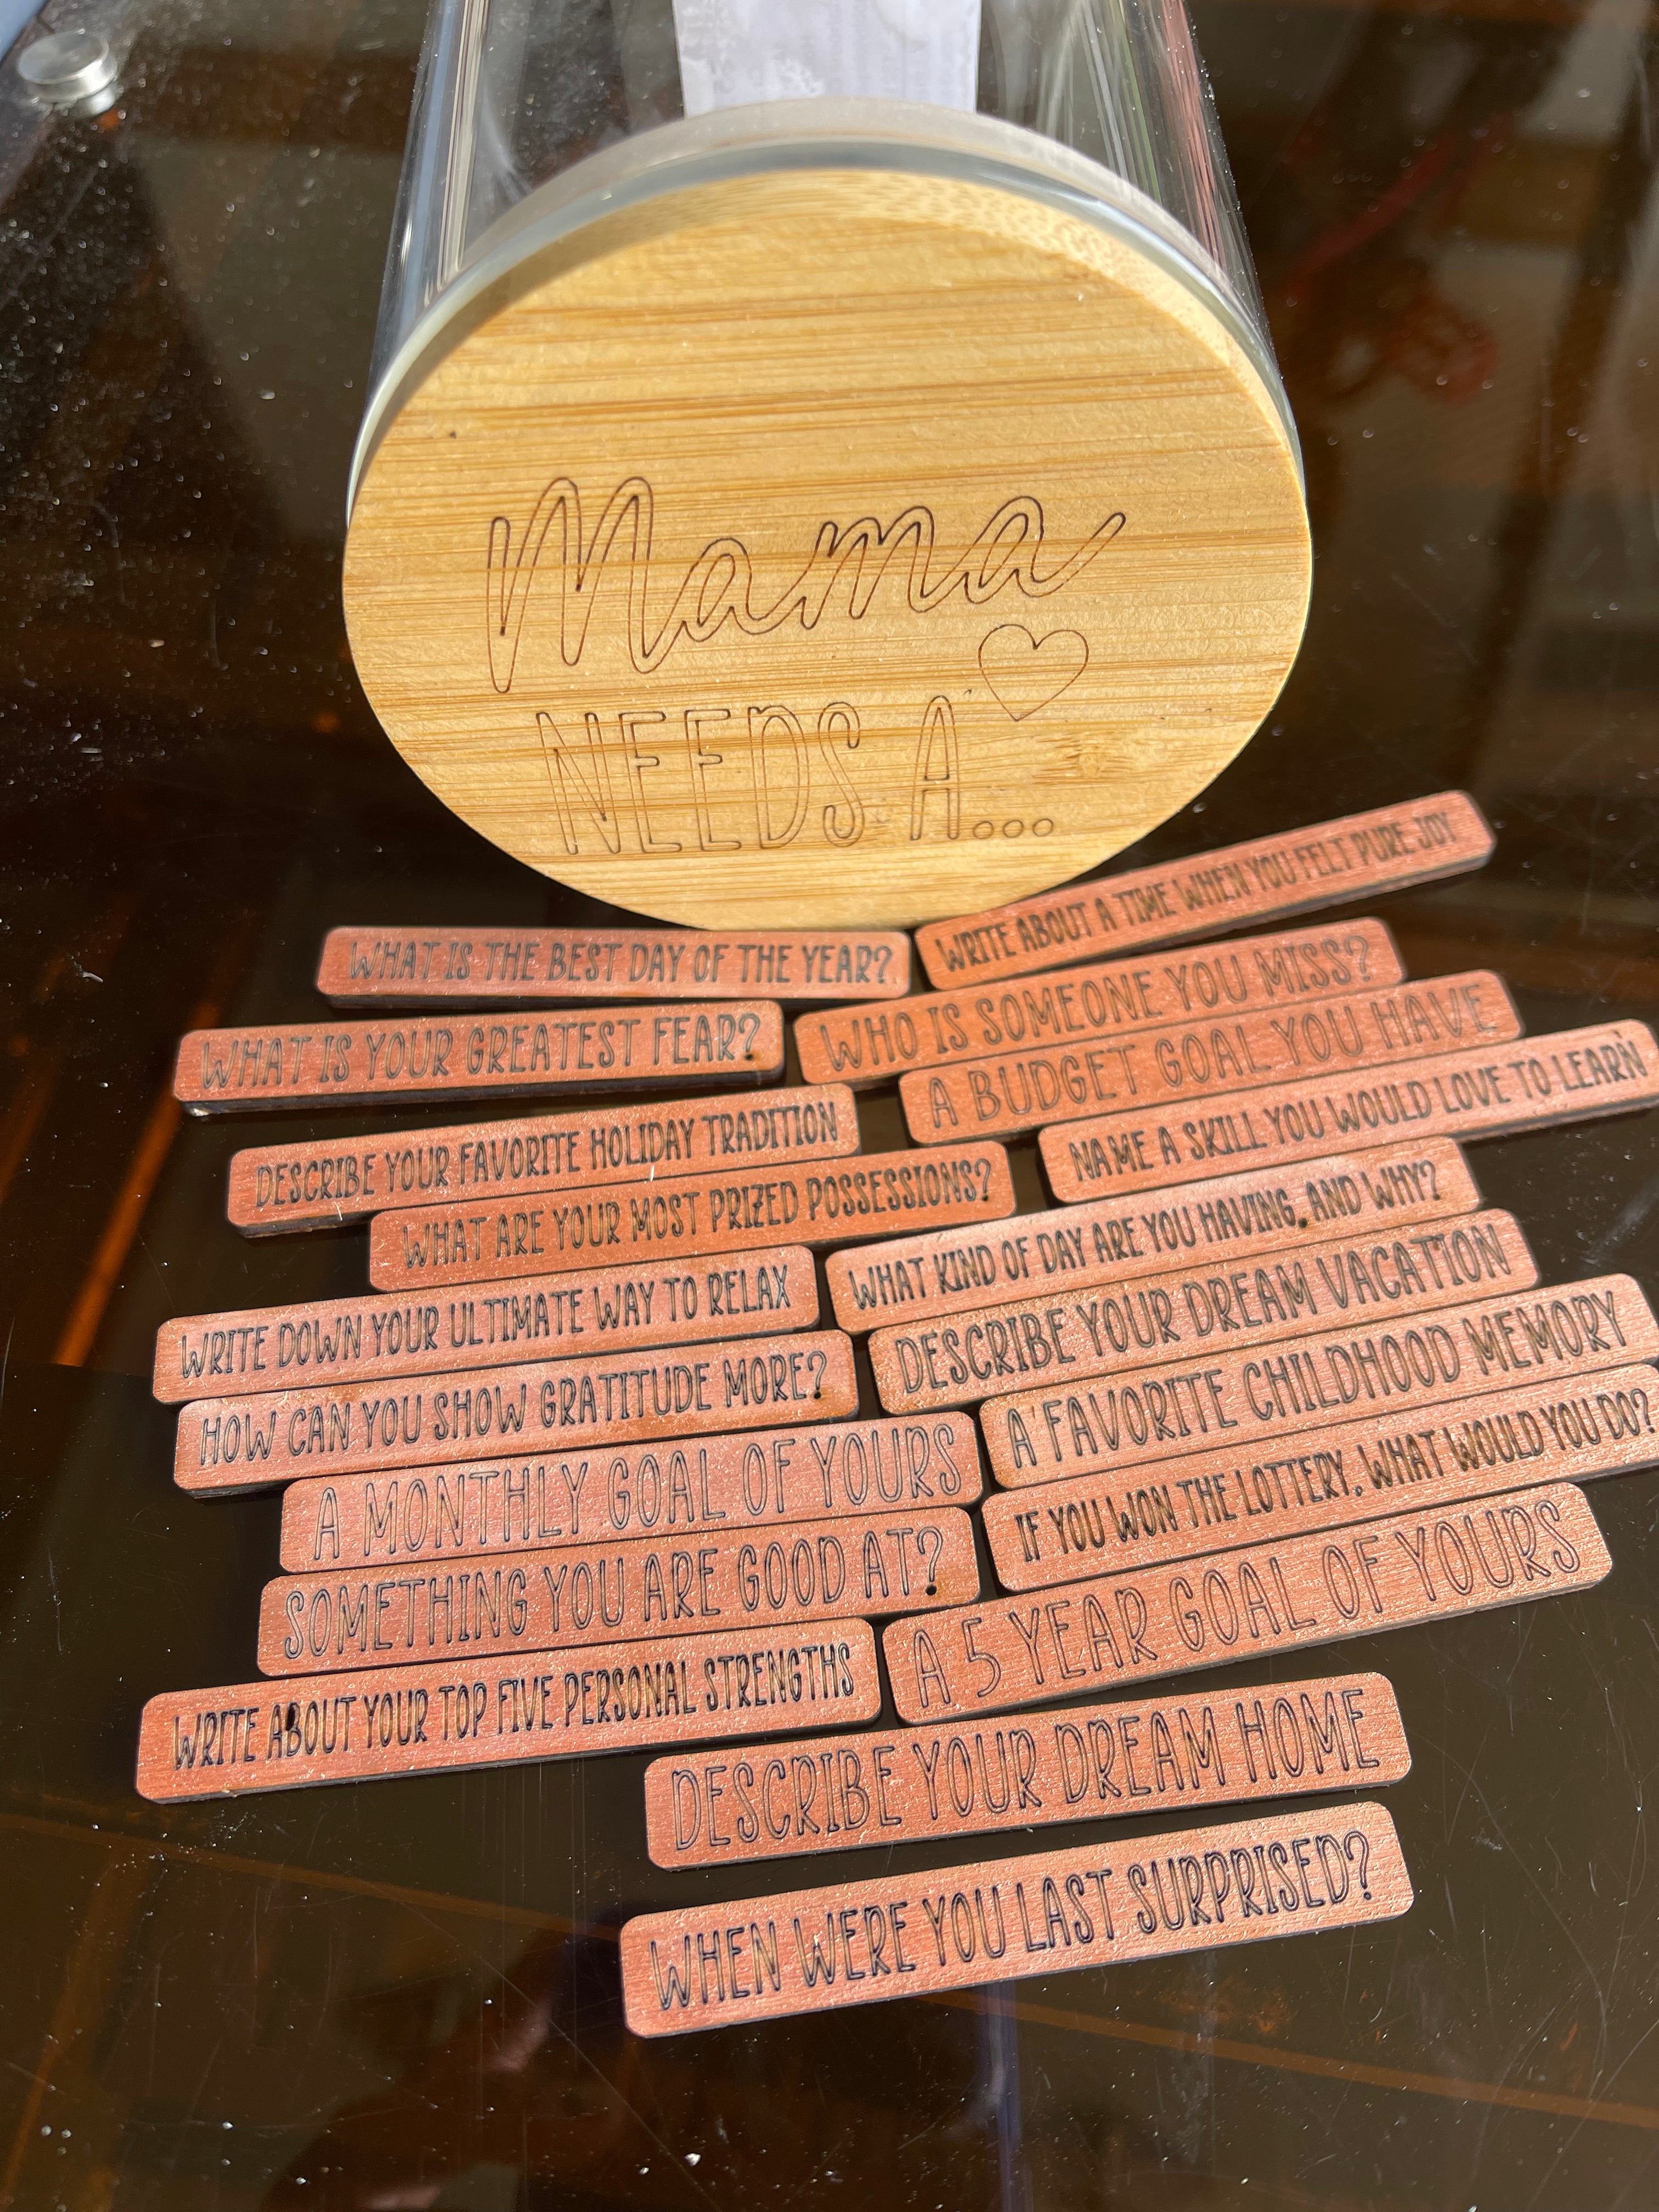 Mama
NEEDS A...
WRITE ABOUT A TIME WHEN YOU FELT PURE JOY
WHAT IS THE BEST DAY OF THE YEAR?
WHO IS SOMEONE YOU MISS?
WHAT IS YOUR GREATEST FEAR?
A BUDGET GOAL YOU HAVE
NAME A SKILL YOU WOULD LOVE TO LEARN
DESCRIBE YOUR FAVORITE HOLIDAY TRADITION
WHAT ARE YOUR MOST PRIZED POSSESSIONS?
WHAT KIND OF DAY ARE YOU HAVING, AND WHY?
WRITE DOWN YOUR ULTIMATE WAY TO RELAX
DESCRIBE YOUR DREAM VACATION
HOW CAN YOU SHOW GRATITUDE MORE?
A FAVORITE CHILDHOOD MEMORY
A MONTHLY GOAL OF YOURS
IF YOU WON THE LOTTERY, WHAT WOULD YOU DO?
SOMETHING YOU ARE GOOD AT?
A 5 YEAR GOAL OF YOURS
WRITE ABOUT YOUR TOP FIVE PERSONAL STRENGTHS
DESCRIBE YOUR DREAM HOME
WHEN WERE YOU LAST SURPRISED?